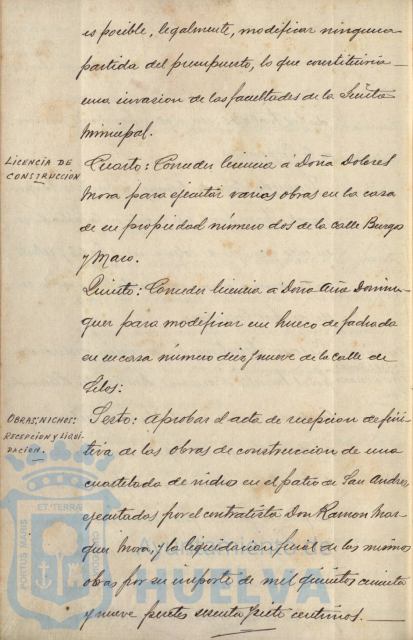 es posible, legalmente, modificar ninguna
partida del presupuesto, lo que constituiria
una invasion de las facultades de la Junta
Municipal.
LICENCIA DE
CONSTRUCCION
Cuarto: Conceder licencia á Doña Dolores
Mora para ejecutar varias obras en la casa
de su propiedad número dos de la calle Burgo
y Mazo.
Quinto: Conceder licencia á Doña Ana Domin-
guez para modificar un hueco de fachada
en su casa número diez y nueve de la calle de
OBRAS; NICHOS:
RECEPCION Y LIQUI-
DACION.
Sesto: Aprobar el acta de recepcion defini-
tiva de las obras de construccion de una
cuartelada de nichos en el patio de San Andres,
ejecutadas por el contratista Don Ramon Mar-
quez Mora, y la liquidacion final de las mismas
obras por su importe de mil quinientas cincuenta
y nueve pesetas y siete centimos.
PORTUS MARIS ET TERRAE CUSTODIA
Ayuntamiento de
HUELVA